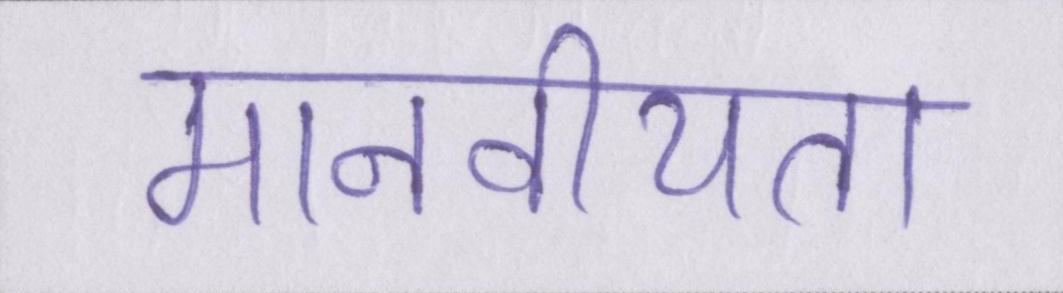 मानवीयता